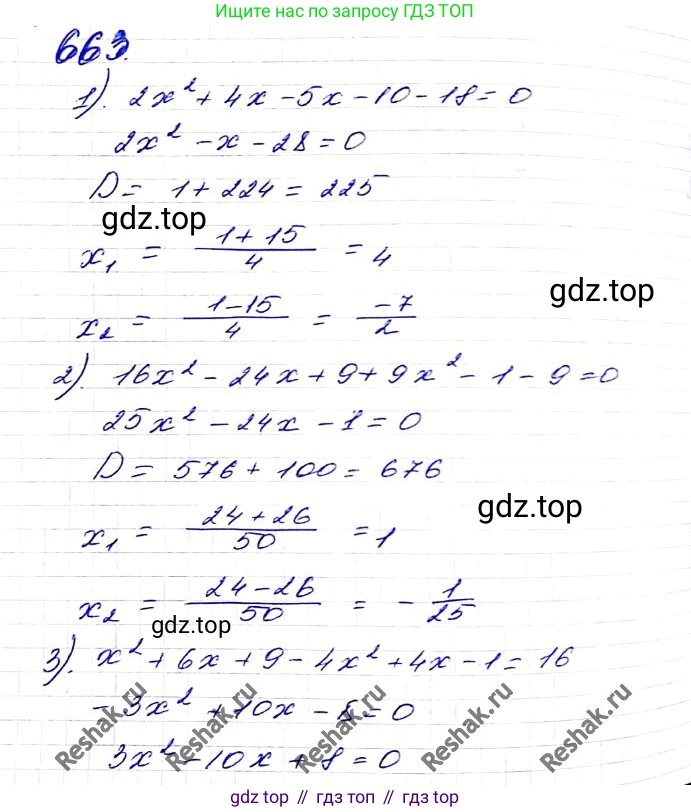 Ищите нас по запросу ГДЗ ТОП
663.
1). 2x² + 4x - 5x - 10 - 18 = 0
2x² - x - 28 = 0
D = 1 + 224 = 225
gdz.top
x₁ = (1 + 15)/4 = 4
gdz.top
x₂ = (1 - 15)/4 = -7/2
2). 16x² - 24x + 9 + 9x² - 1 - 9 = 0
25x² - 24x - 1 = 0
D = 576 + 100 = 676
gdz.top
x₁ = (24 + 26)/50 = 1
x₂ = (24 - 26)/50 = - 1/25
gdz.top
3). x² + 6x + 9 - 4x² + 4x - 1 = 16
- 3x² + 10x - 8 = 0
3x² - 10x + 8 = 0
Reshak.ru
Reshak.ru
Reshak.ru
Reshak.ru
gdz top // гдз топ // gdz.top